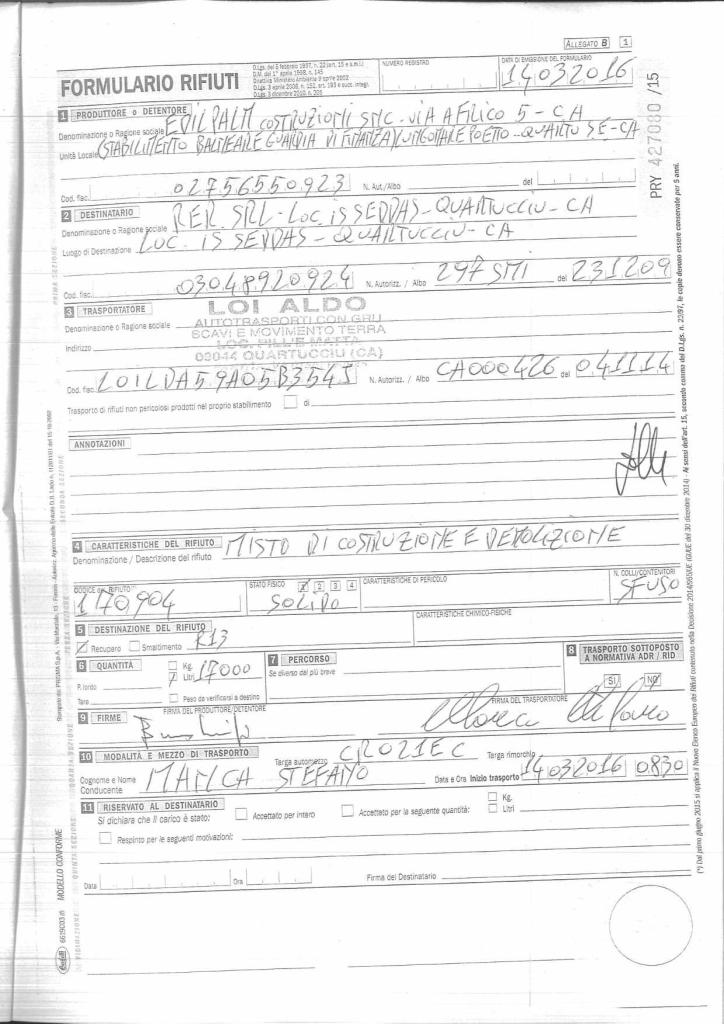 ALLEGATO B 1
FORMULARIO RIFIUTI
D.Lgs. del 5 febbraio 1997, n. 22 (art. 15 e s.m.i.)
D.M. del 1° aprile 1998, n. 145
Direttiva Ministero Ambiente 9 aprile 2002
D.Lgs. 3 aprile 2006, n. 152, art. 193 e succ. integr.
D.Lgs. 3 dicembre 2010, n. 205
NUMERO REGISTRO
DATA DI EMISSIONE DEL FORMULARIO
14032016
PRY 427080 /15
1 PRODUTTORE o DETENTORE
Denominazione o Ragione sociale EDILPALM COSTRUZIONI SNC - VIA A FILICO 5 - CA
Unità Locale (STABILIMENTO BALNEARE GUARDIA DI FINANZA) LUNGOMARE POETTO - QUARTU SE - CA
Cod. fisc. 02756550923 N. Aut./Albo del
2 DESTINATARIO
Denominazione o Ragione sociale RER SRL - LOC. IS SERDAS - QUARTUCCIU - CA
Luogo di Destinazione LOC. IS SERDAS - QUARTUCCIU - CA
Cod. fisc. 03048920924 N. Autorizz. / Albo 297 SMI del 231209
3 TRASPORTATORE
LOI ALDO
Denominazione o Ragione sociale AUTOTRASPORTI CON GRU
SCAVI E MOVIMENTO TERRA
Indirizzo LOC. PILL'E MATTA
09044 QUARTUCCIU (CA)
Cod. fisc. LOILDA59A05B354I N. Autorizz. / Albo CA000426 del 041114
Trasporto di rifiuti non pericolosi prodotti nel proprio stabilimento di
ANNOTAZIONI
4 CARATTERISTICHE DEL RIFIUTO
Denominazione / Descrizione del rifiuto MISTO DI COSTRUZIONE E DEMOLIZIONE
CODICE del RIFIUTO
170904
STATO FISICO 1 2 3 4
SOLIDO
CARATTERISTICHE DI PERICOLO
N. COLLI/CONTENITORI
SFUSO
CARATTERISTICHE CHIMICO-FISICHE
5 DESTINAZIONE DEL RIFIUTO
Recupero Smaltimento R13
6 QUANTITÀ
Kg.
Litri 17000
P. lordo
Tara
Peso da verificarsi a destino
7 PERCORSO
Se diverso dal più breve
8 TRASPORTO SOTTOPOSTO
A NORMATIVA ADR / RID
SI NO
9 FIRME
FIRMA DEL PRODUTTORE/DETENTORE
FIRMA DEL TRASPORTATORE
10 MODALITÀ E MEZZO DI TRASPORTO
Targa automezzo CR021EC Targa rimorchio
Cognome e Nome
Conducente MANCA STEFANO
Data e Ora Inizio trasporto 14032016 0830
11 RISERVATO AL DESTINATARIO
Si dichiara che il carico è stato: Accettato per intero Accettato per la seguente quantità: Kg. Litri
Respinto per le seguenti motivazioni:
Data Ora Firma del Destinatario
MODELLO CONFORME
PRIMA SEZIONE
SECONDA SEZIONE
TERZA SEZIONE
QUARTA SEZIONE
QUINTA SEZIONE
(*) Dal primo giugno 2015 si applica il Nuovo Elenco Europeo dei Rifiuti contenuto nella Decisione 2014/955/UE (GUUE del 30 dicembre 2014) - Ai sensi dell'art. 15, secondo comma del D.Lgs. n. 22/97, le copie devono essere conservate per 5 anni.